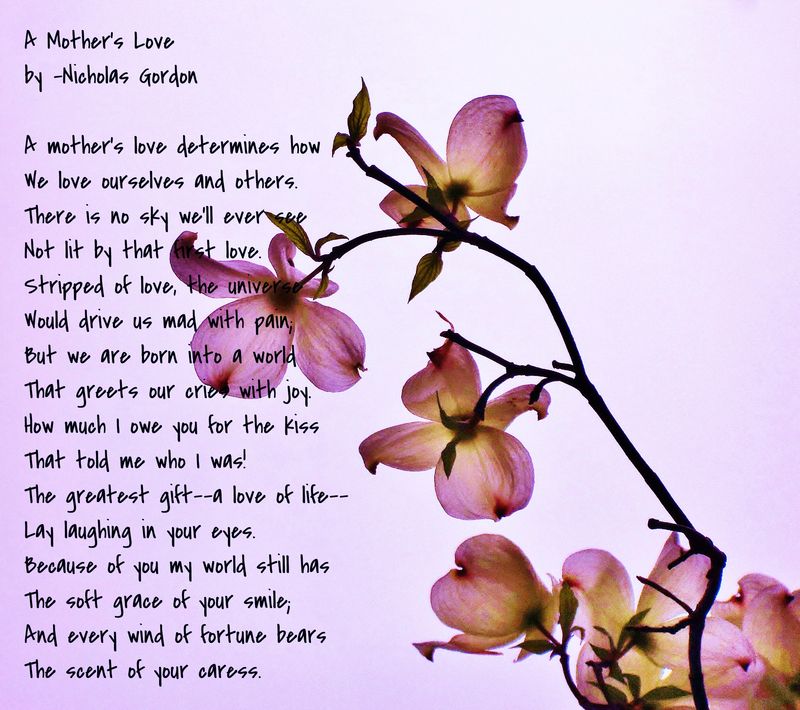 A Mother's Love
by -Nicholas Gordon
A mother's love determines how
We love ourselves and others.
There is no sky we'll ever see
Not lit by that first love.
Stripped of love, the universe
Would drive us mad with pain;
But we are born into a world
That greets our cries with joy.
How much I owe you for the kiss
That told me who I was!
The greatest gift--a love of life--
Lay laughing in your eyes.
Because of you my world still has
The soft grace of your smile;
And every wind of fortune bears
The scent of your caress.